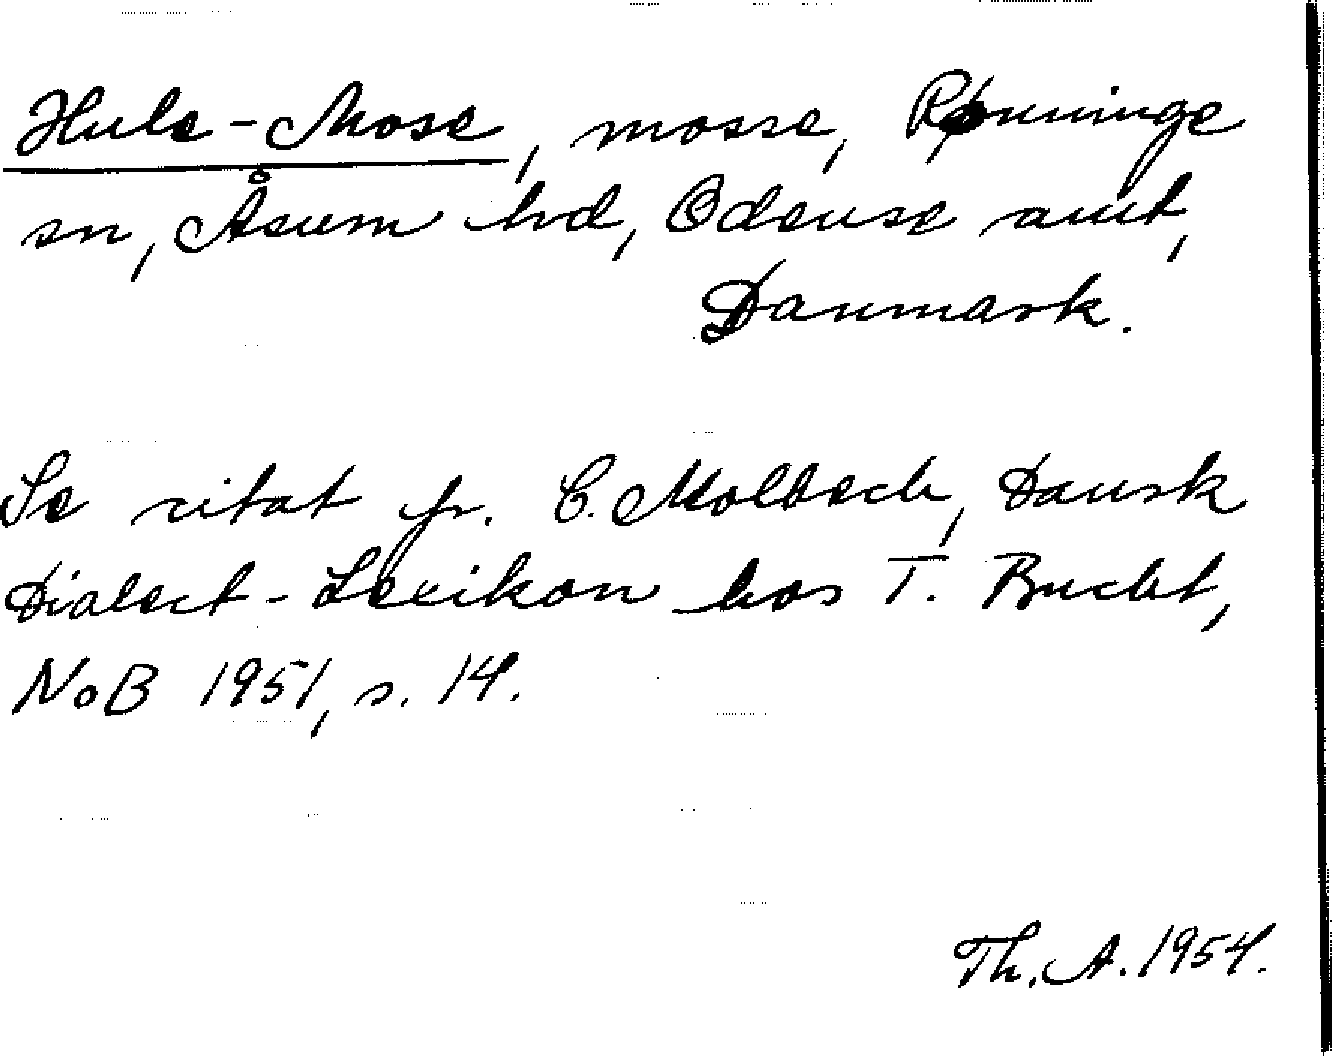 Hule-Mose, mosse, Rønninge
sn, Åsum hd, Odense amt,
Danmark.
Se citat fr. C. Molbech, Dansk
Dialect-Lexikon hos T. Bucht,
NoB 1951, s. 14.
Th. A. 1954.